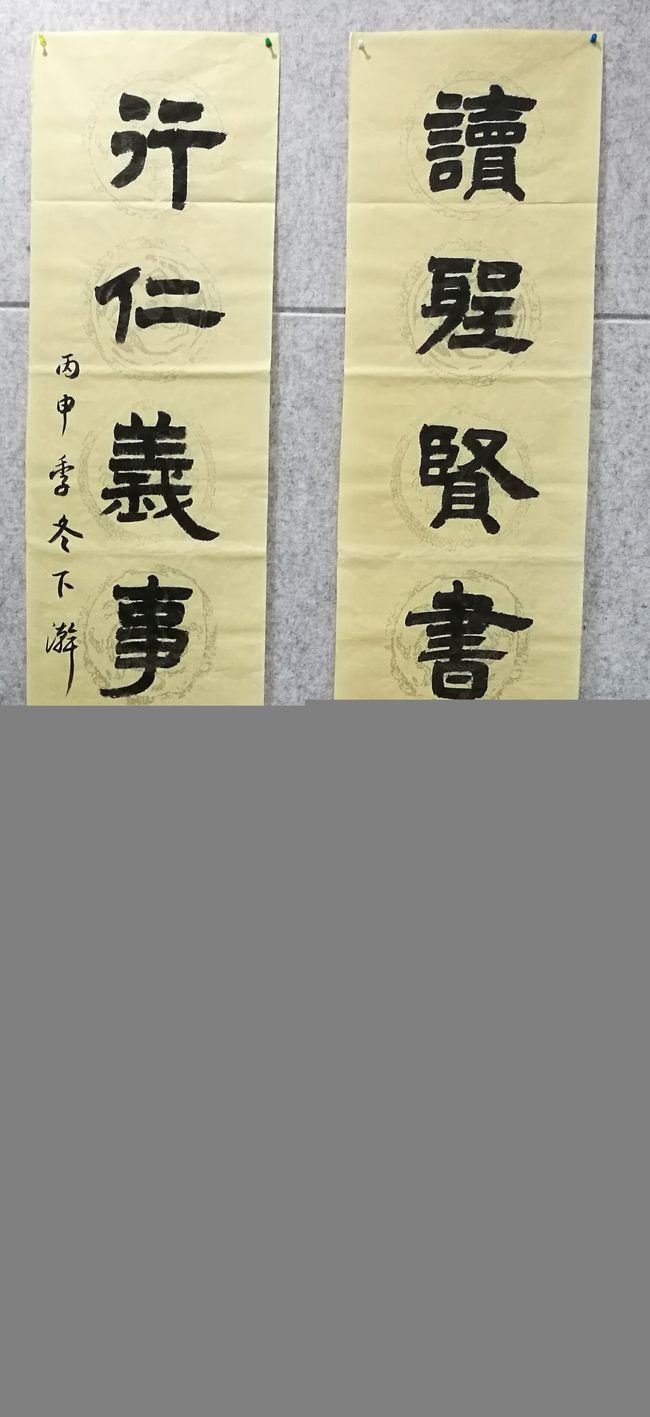 讀聖賢書
行仁義事
丙申季冬下瀚